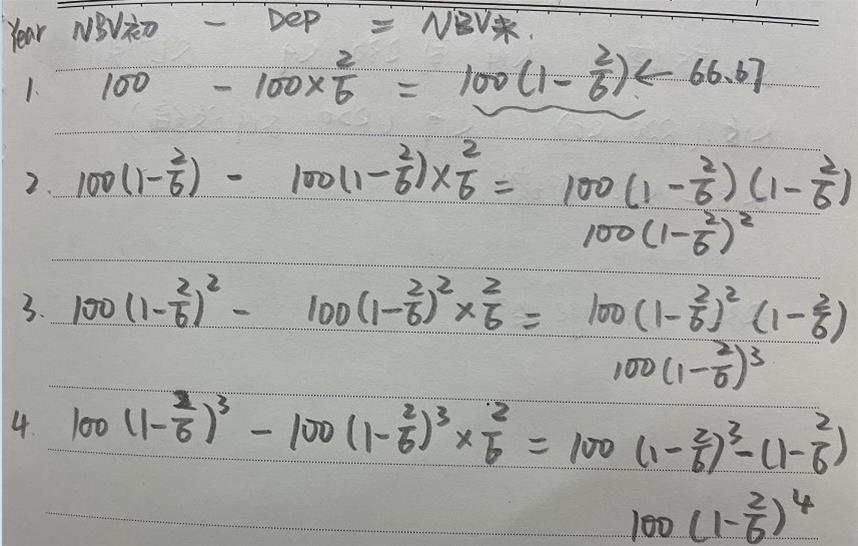 Year NBV初 - Dep = NBV末.
1. 100 - 100×2/6 = 100(1-2/6) ← 66.67
2. 100(1-2/6) - 100(1-2/6)×2/6 = 100(1-2/6)(1-2/6)
100(1-2/6)²
3. 100(1-2/6)² - 100(1-2/6)²×2/6 = 100(1-2/6)²(1-2/6)
100(1-2/6)³
4. 100(1-2/6)³ - 100(1-2/6)³×2/6 = 100(1-2/6)³-(1-2/6)
100(1-2/6)⁴